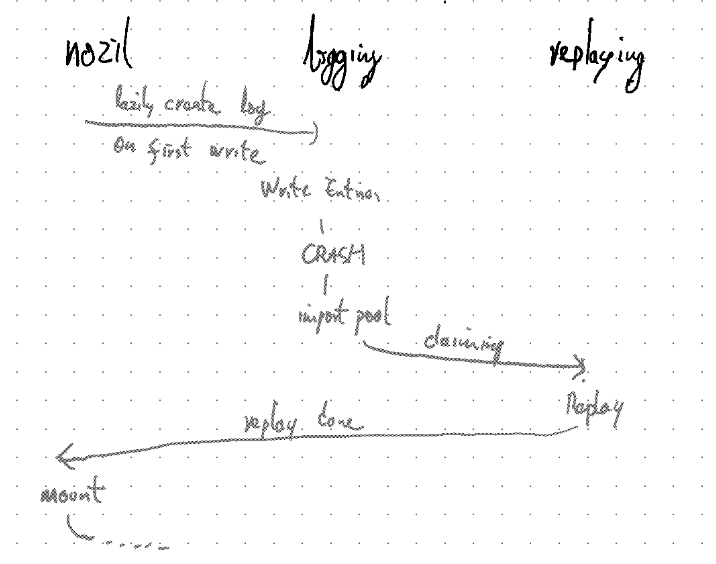 nozil
logging
replaying
lazily create log
on first write
Write Entries
CRASH
import pool
claiming
Replay
replay done
mount